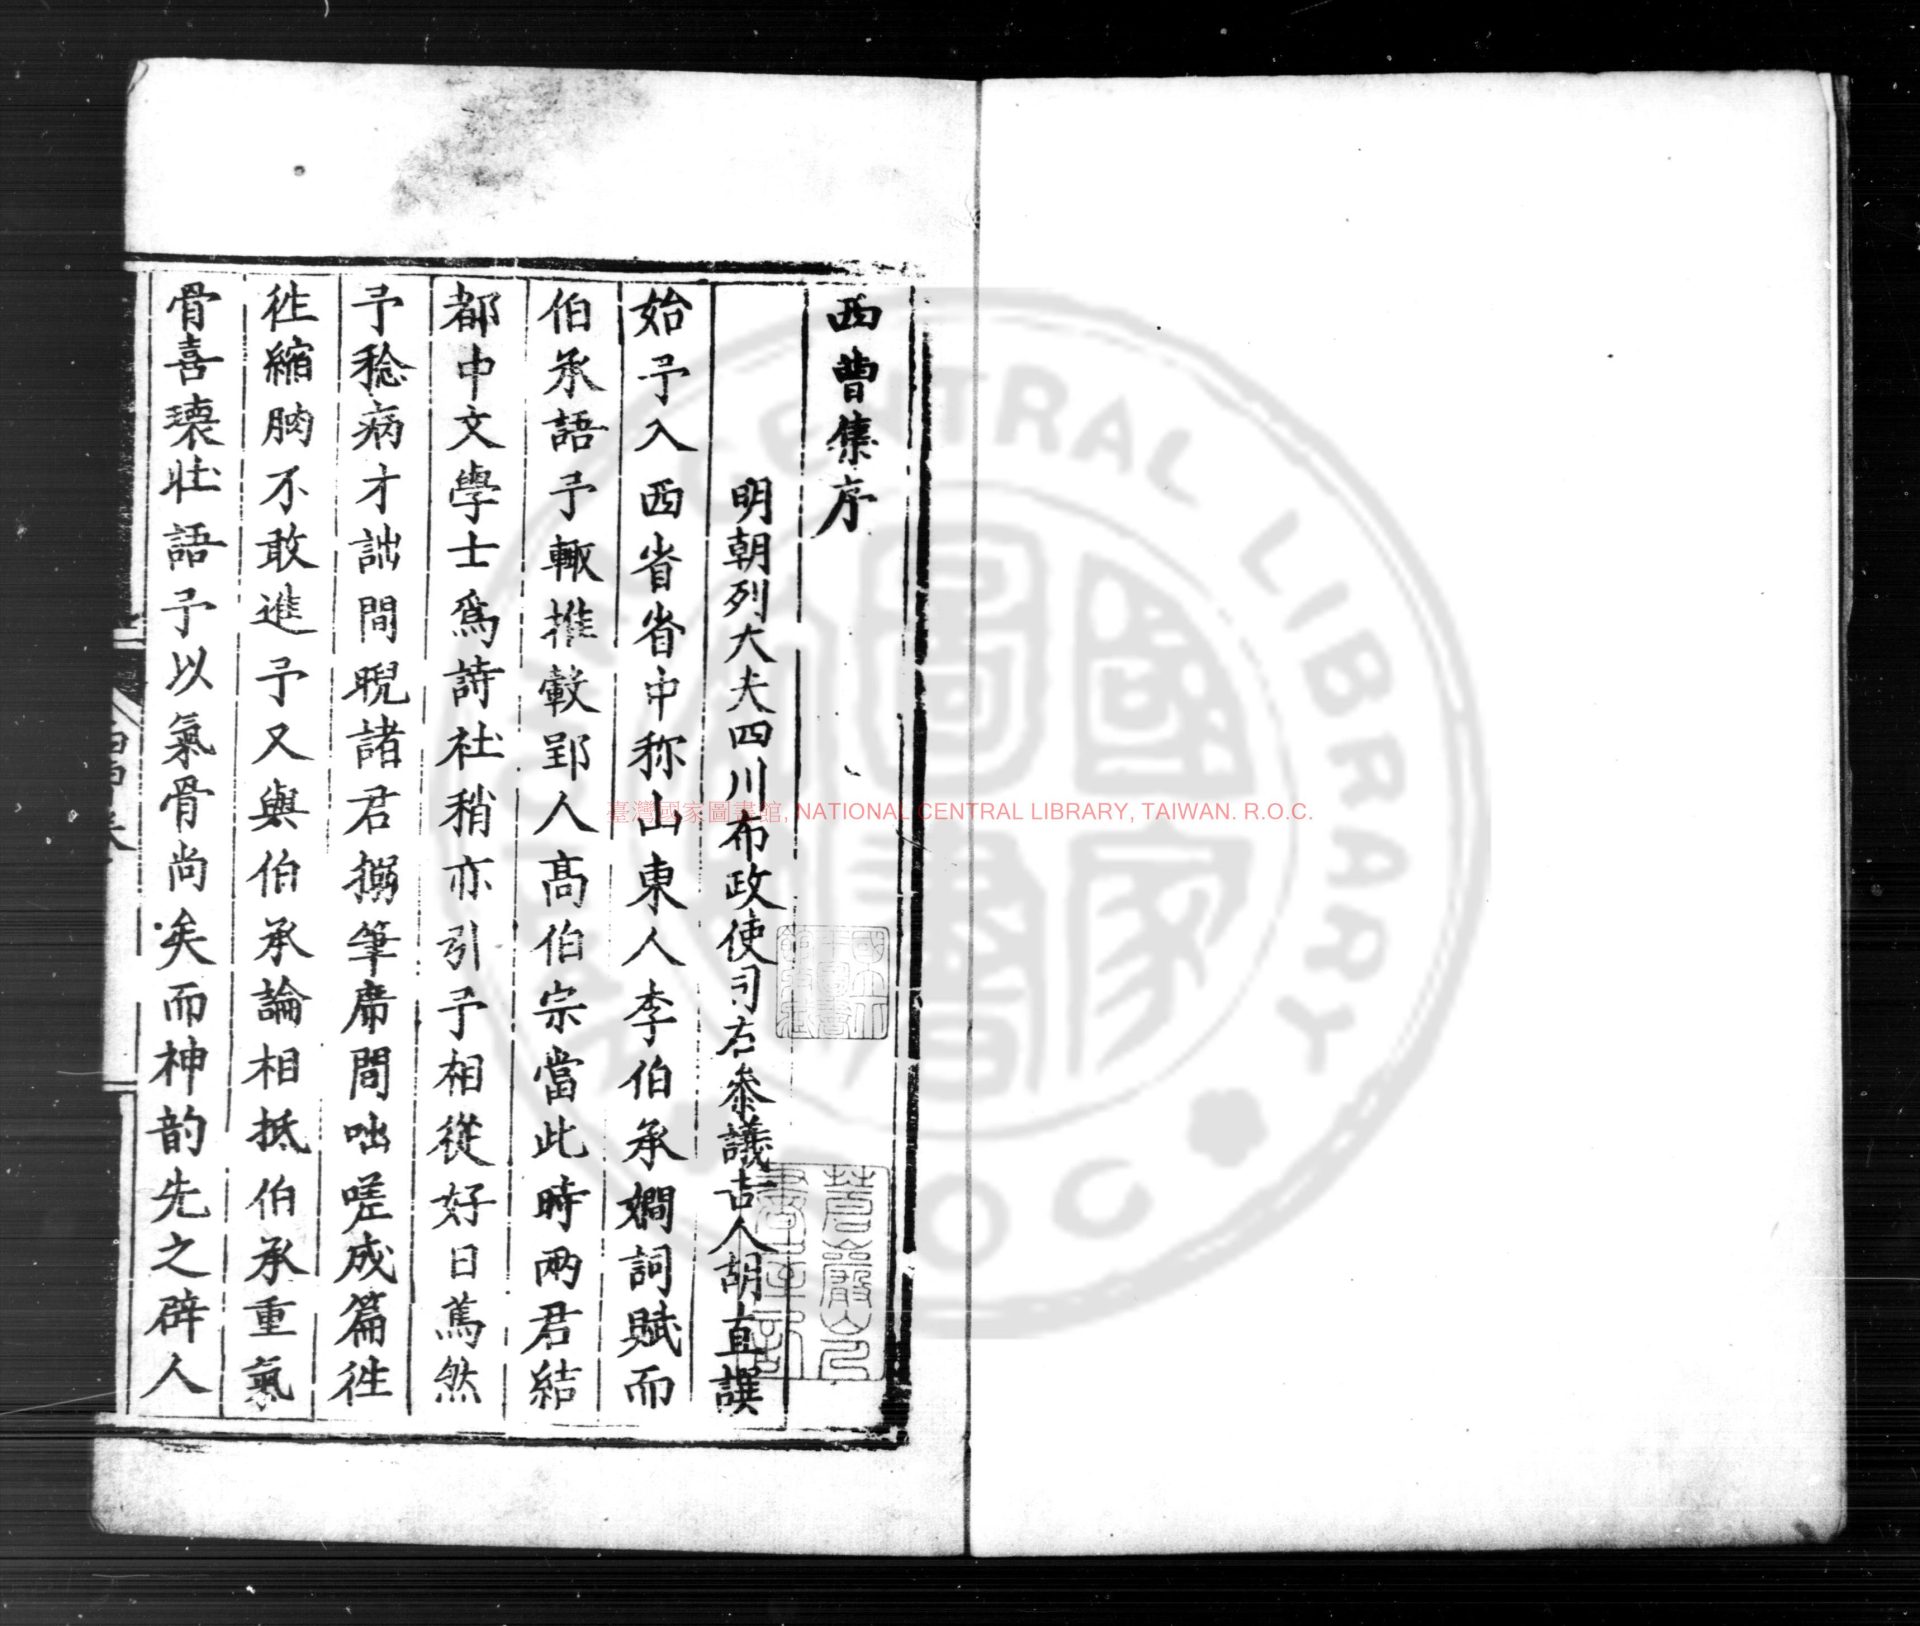 西曹集序
明朝列大夫四川布政使司右叅議吉人胡直譔
始予入西省省中称山東人李伯承嫺詞賦而
伯承語予輙推轂郢人髙伯宗當此時兩君結
都中文學士爲詩社稍亦引予相從好日蔫然
予稔病才詘間睨諸君搦筆席間咄嗟成篇徃
徃縮朒不敢進予又與伯承論相抵伯承重氣
骨喜瓌壯語予以氣骨尚矣而神韵先之辟人
臺灣國家圖書館, NATIONAL CENTRAL LIBRARY, TAIWAN. R.O.C.